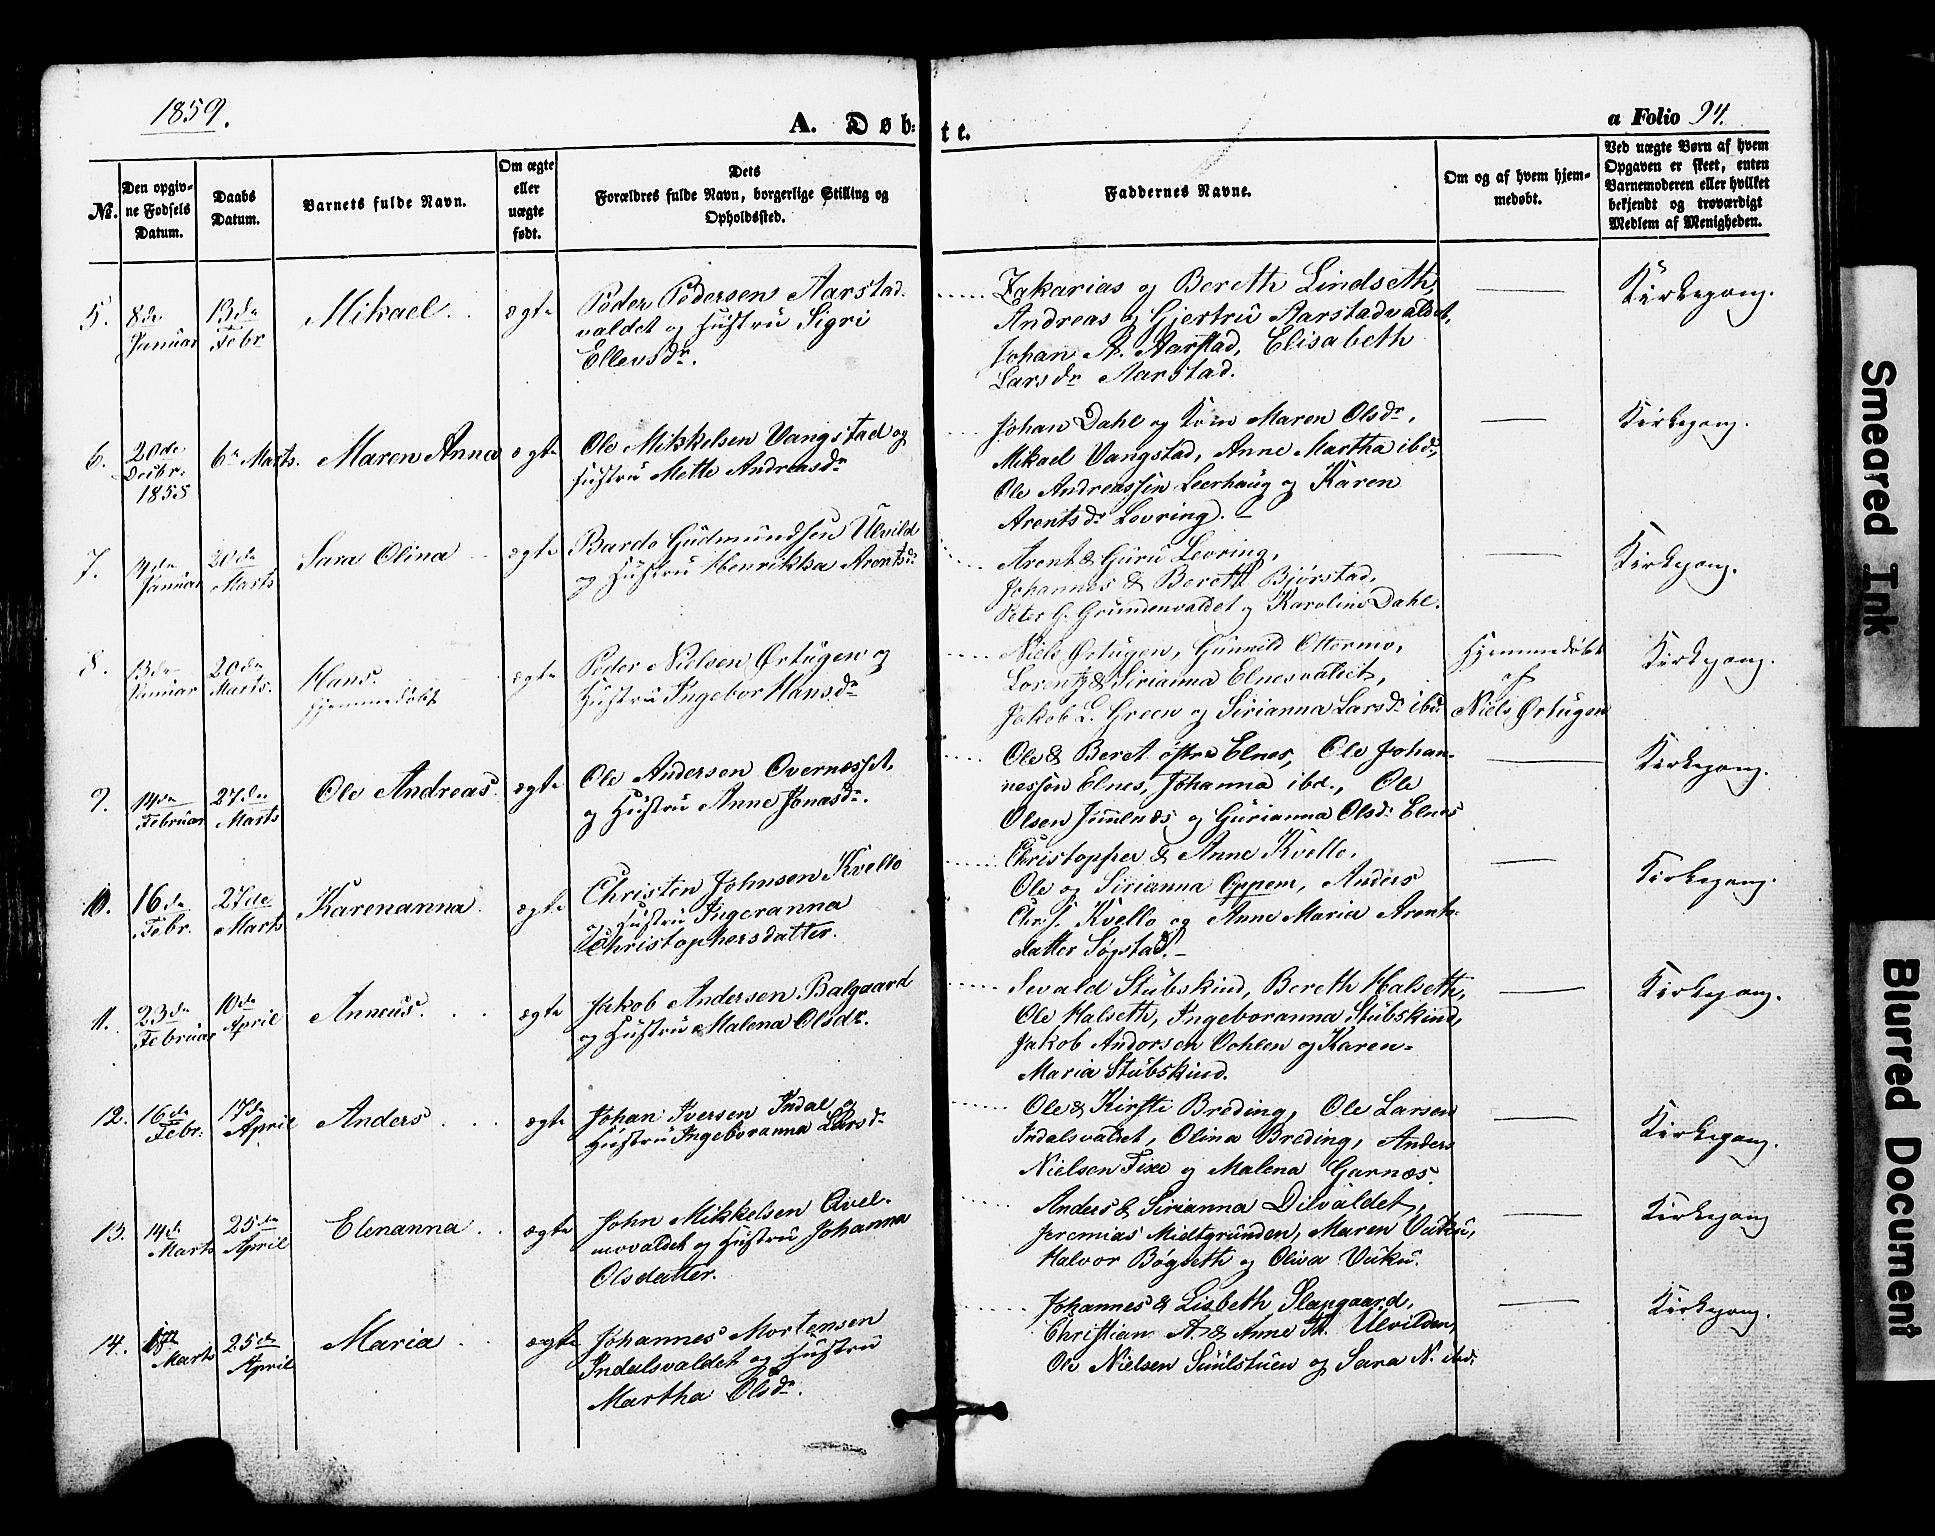 1859.
A. Døb:
te.
a Folio 94.
№.
Den opgiv-
ne Fødsels
Datum.
Daabs
Datum.
Barnets fulde Navn.
Om ægte
eller
uægte
født.
Dets
Forældres fulde Navn, borgerlige Stilling og
Opholdssted.
Faddernes Navne.
Om og af hvem hjem-
medøbt.
Ved uægte Børn af hvem
Opgaven er skeet, enten
Barnemoderen eller hvilket
bekjendt og troværdigt
Medlem af Menigheden.
5. 8de Januar 13de Febr Mikael. ægte
Peder Pedersen Aarstad-
valdet og Hustru Sigri
Ellevsdr.
Zakarias og Bereth Lindseth,
Andreas og Gjertru Aarstadvaldet,
Johan A. Aarstad, Elisabeth
Larsdr Aarstad.
Kirkegang.
6. 20de Decbr. 1858 6te Marts. Maren Anna ægte
Ole Mikkelsen Vangstad og
Hustru Mette Andreasdr
Johan Dahl og Kone Maren Olsdr,
Mikael Vangstad, Anne Martha ibd.,
Ole Andreassen Leerhaug og Karen
Arentsdr Levring. –
Kirkegang.
7. Januar 20de Marts Sara Olina ægte
Bardo Gudmundsen Ulvild
og Hustru Henrikka Arentsdr
Arent & Guru Levring,
Johannes & Bereth Bjørstad,
Peter G. Grundenvaldet og Karoline Dahl.
Kirkegang.
8. 13de Januar 20de Marts. Hans. ægte
hjemmedøbt
Peder Nielsen Ørtugen og
Hustru Ingebor Hansdr
Niels Ørtugen, Gunnild Ottermo,
Lorentz & Sirianna Elnesvaldet,
Jakob L. Green og Sirianna Larsdr ibd.
Hjemmedøbt
af
Niels Ørtugen
Kirkegang.
9. 14de Februar 27de Marts Ole Andreas. ægte
Ole Andersen Overnesset,
og Hustru Anne Jonasdr.
Ole & Beret østre Elnes, Ole Johan-
nessen Elnes, Johanna ibd., Ole
Olsen Jumlnes og Gurianna Olsdr Elnes
Kirkegang.
10. 16de Febr. 27de Marts Karenanna ægte
Christen Johnsen Kvello
og Hustru Ingeranna
Christophersdatter.
Christopher & Anne Kvello,
Ole og Sirianna Oppem, Anders
Chr.s. Kvello og Anne Maria Arents-
datter Søgstad. –
Kirkegang.
11. 23de Februar 10de April Anneus. ægte
Jakob Andersen Balgaard
og Hustru Malena Olsdr.
Sevald Stubskind, Bereth Halseth,
Ole Halseth, Ingeboranna Stubskind,
Jakob Andersen Vohlen og Karen-
Maria Stubskind.
Kirkegang.
12. 16de Febr. 17de April Anders ægte
Johan Iversen Indal og
Hustru Ingeboranna Larsdr
Ole & Kirsti Breding, Ole Larsen
Indalsvaldet, Olina Breding, Anders
Nielsen Tixe og Malena Garnæs.
Kirkegang.
13. 14de Marts 25de April Elenanna ægte
John Mikkelsen Qvel-
movaldet og Hustru Johanna
Olsdatter.
Anders & Sirianna Dilvaldet,
Jeremias Midtgrunden, Maren Vuku,
Halvor Bøgseth og Oliva Vuku.
Kirkegang
14. Marts 25de April Maria ægte
Johannes Mortensen
Indalsvaldet og Hustru
Martha Olsdr.
Johannes & Lisbeth Slapgaard,
Christian A. & Anne M. Ulvilden,
Ole Nielsen Suulstuen og Sara N. ibd.
Kirkegang.
Smeared Ink
Blurred Document